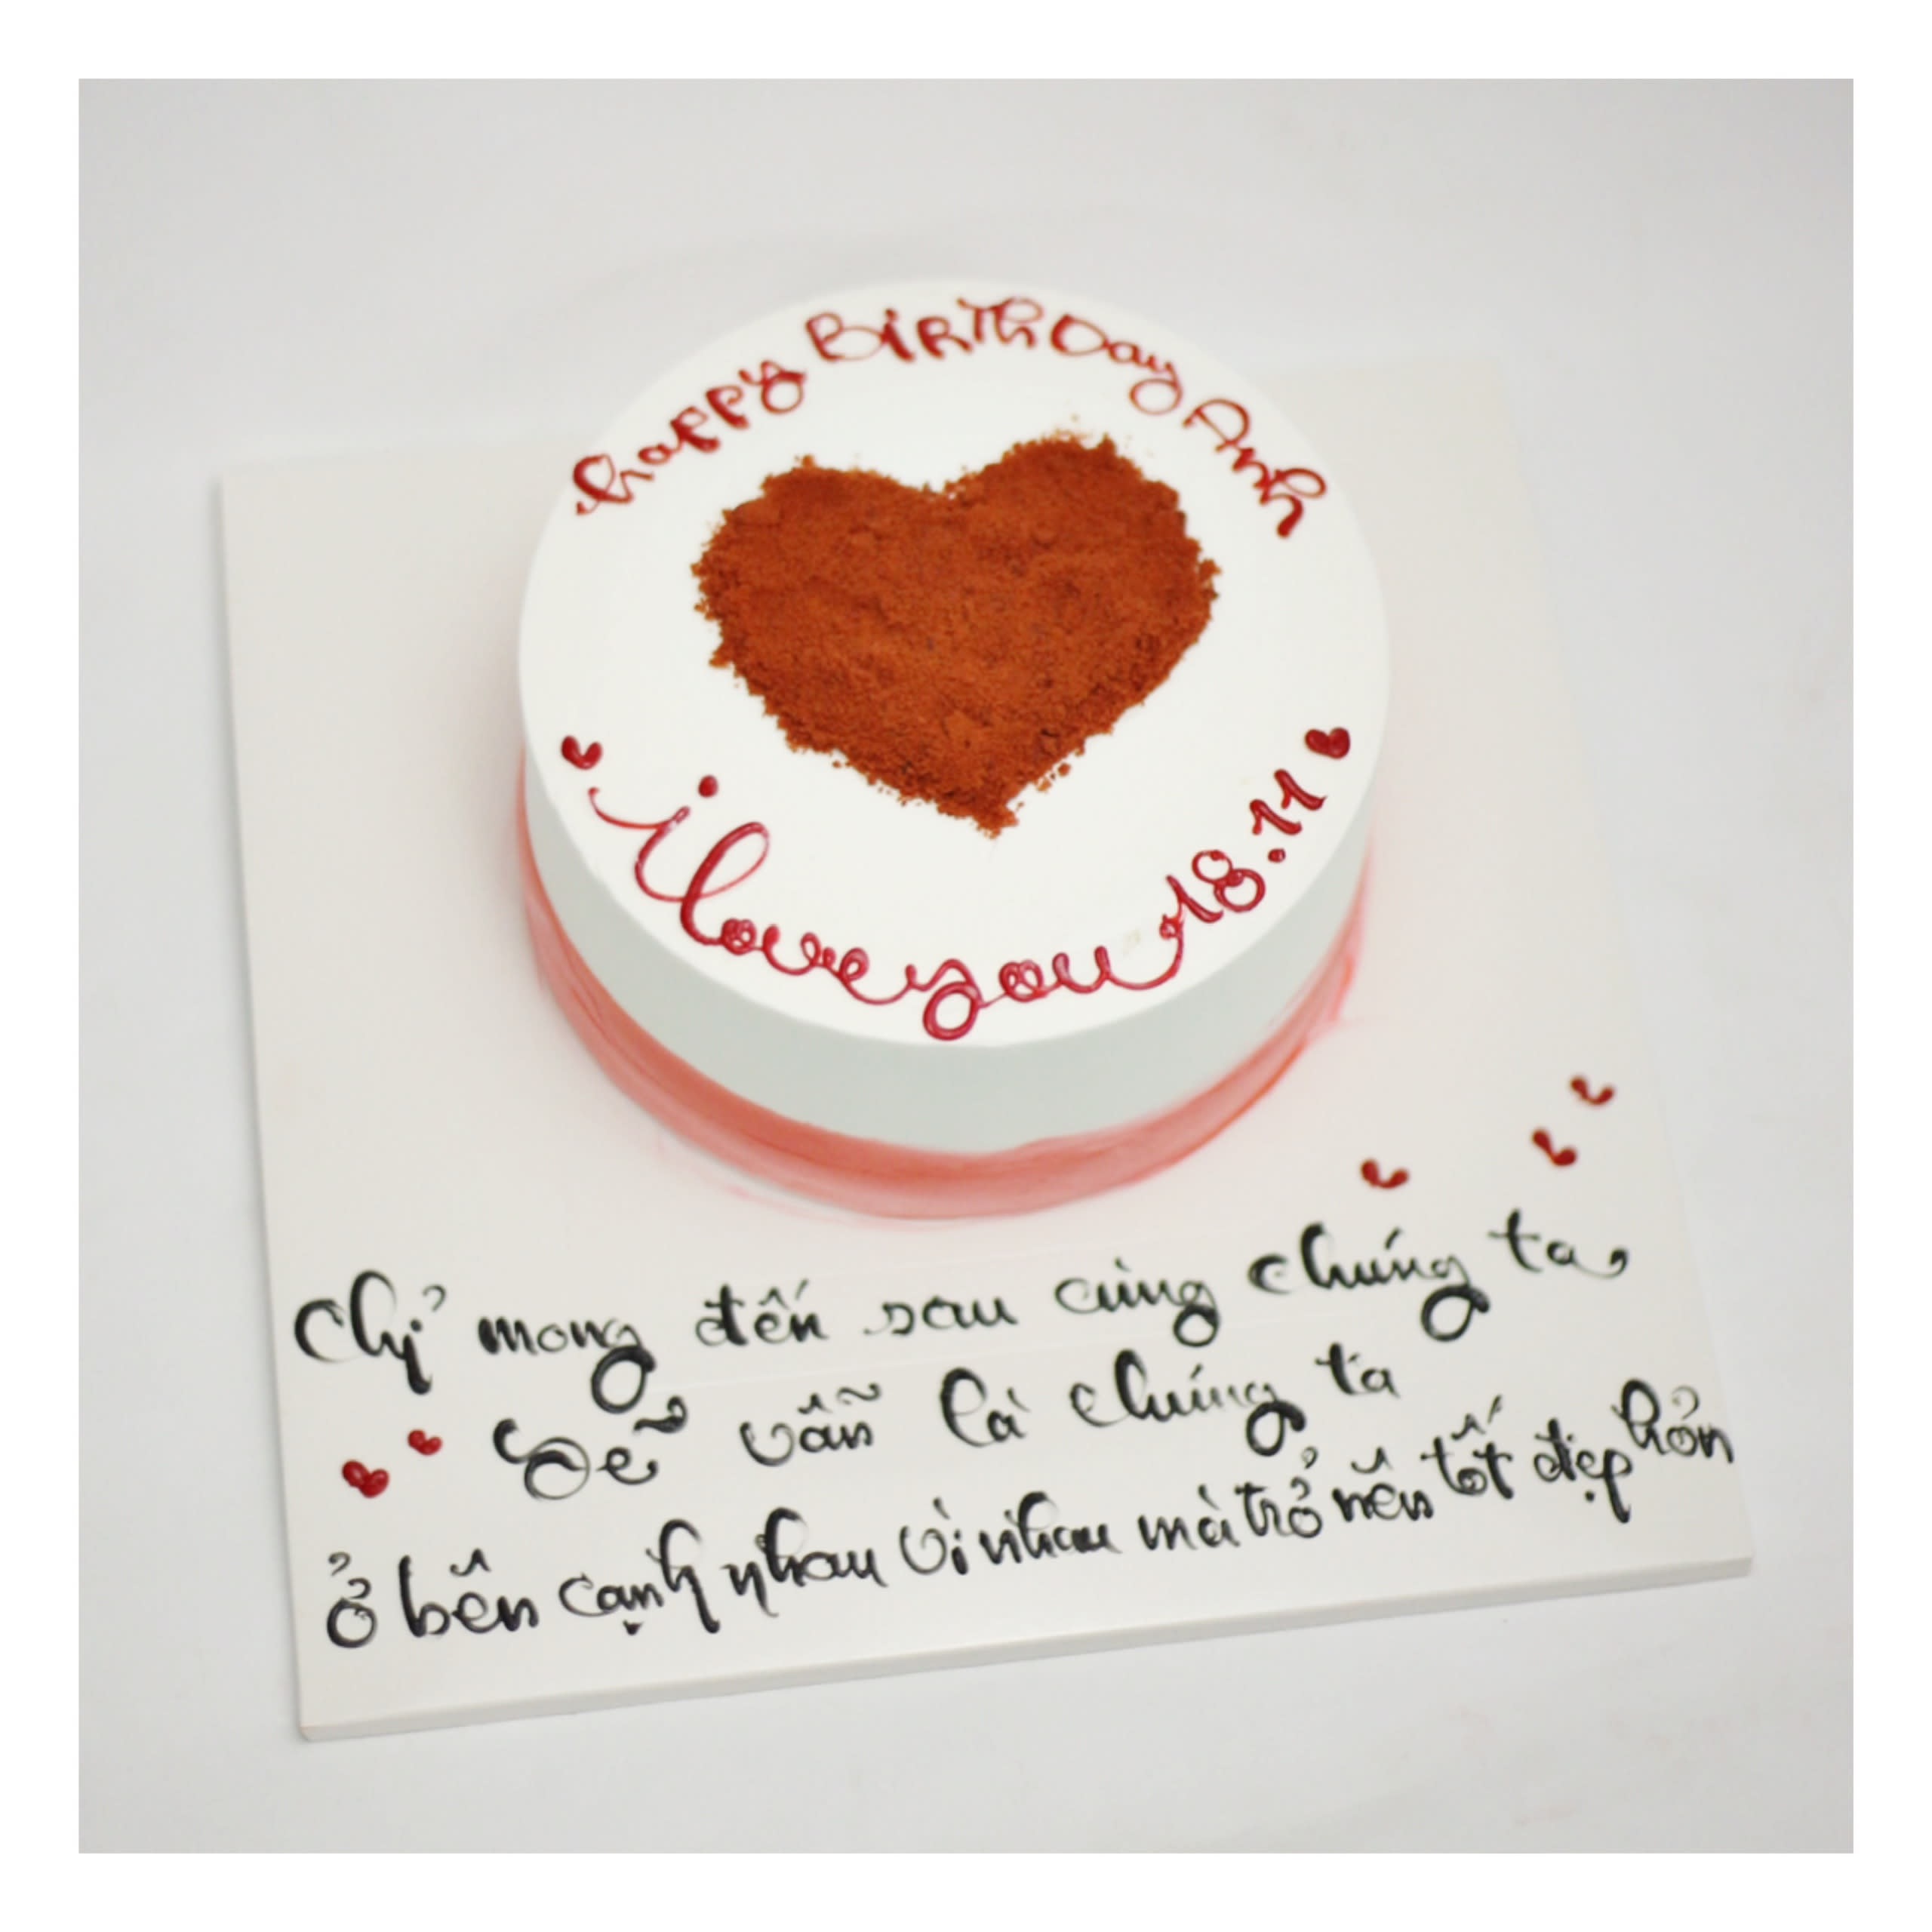 happy BirthDay Anh
i love you 18.11
Chỉ mong đến sau cùng chúng ta
Sẽ vẫn là chúng ta
ở bên cạnh nhau vì nhau mà trở nên tốt đẹp hơn